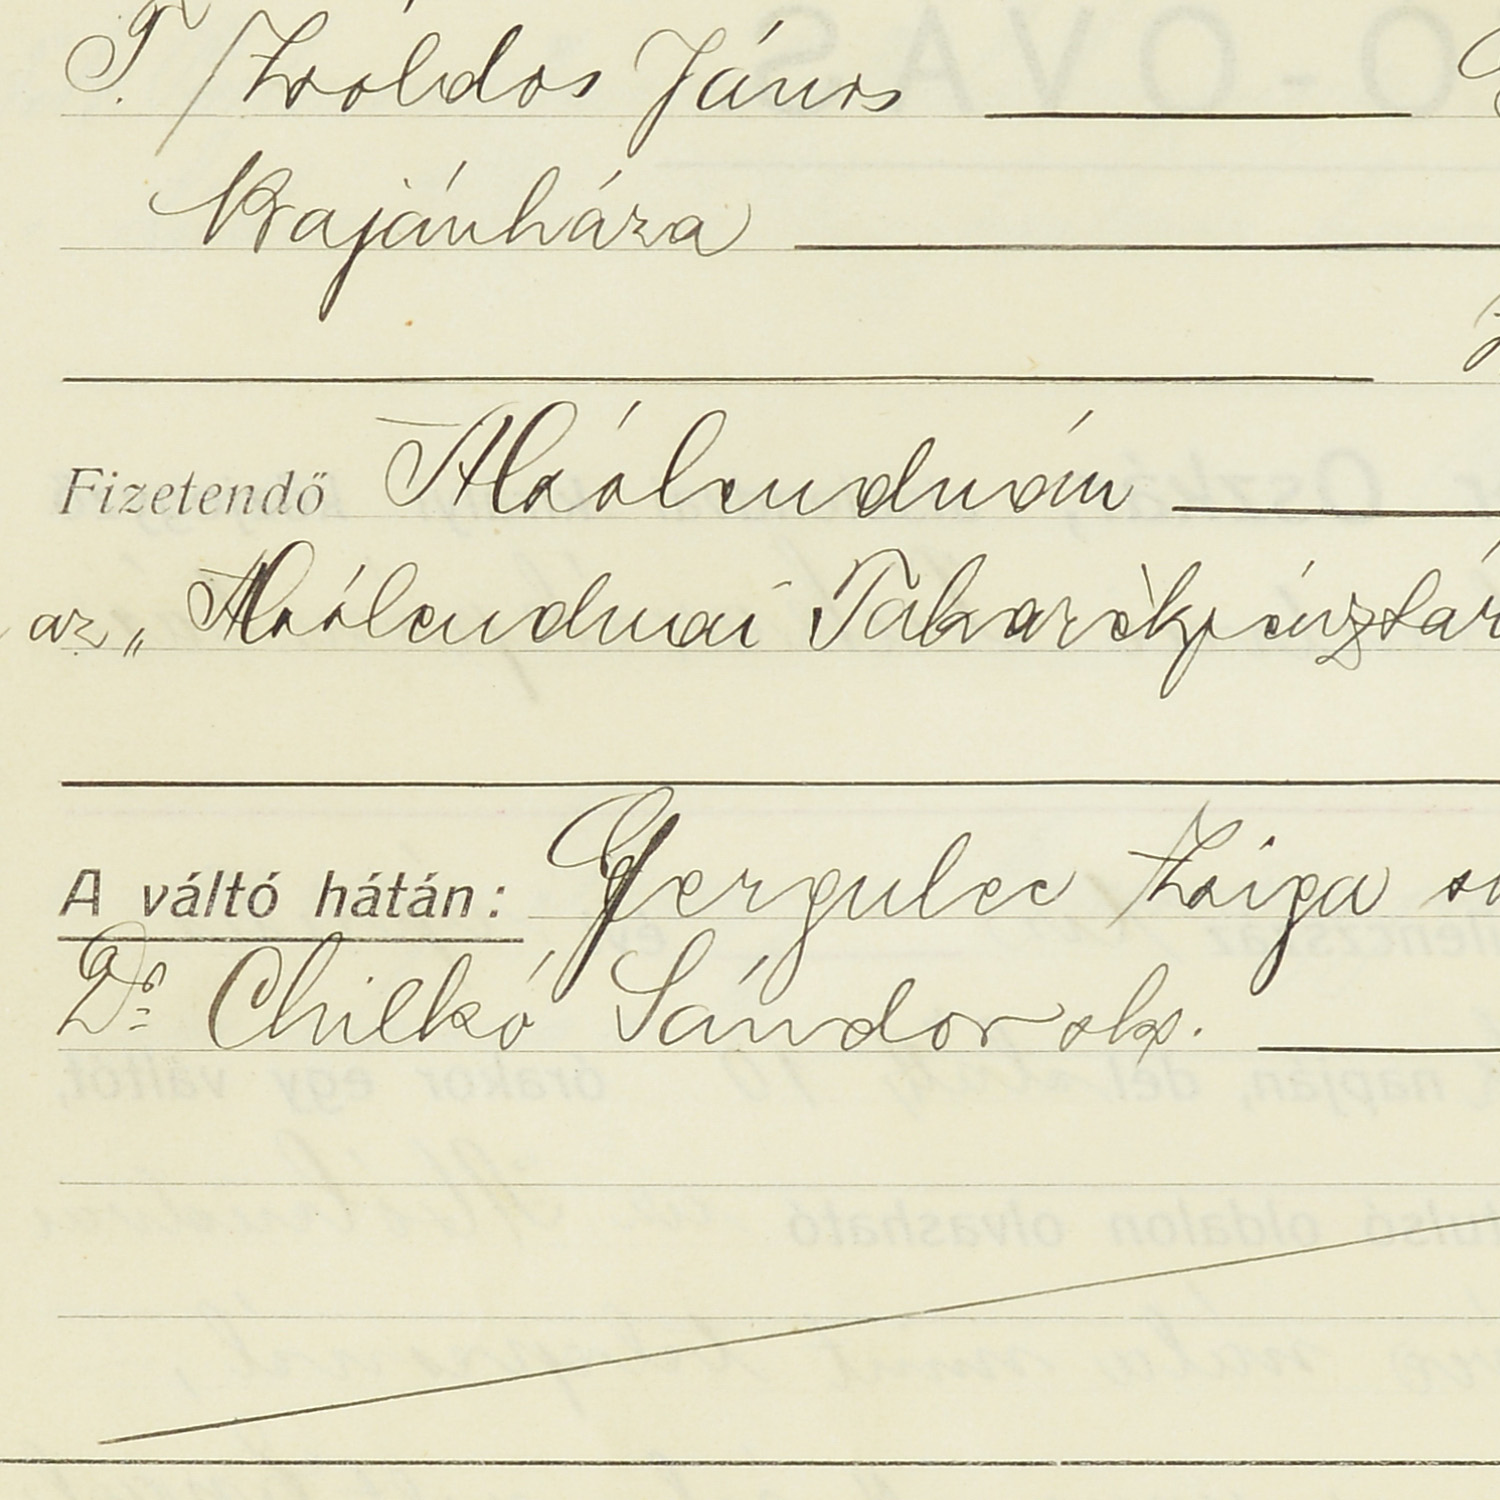 T. Zsoldos János
Krajánháza
Fizetendő Alsólendván
az „Alsólendvai Takarékpénztár
A váltó hátán: Gergulec Ziga sk
Dr. Chilkó Sándor sk.